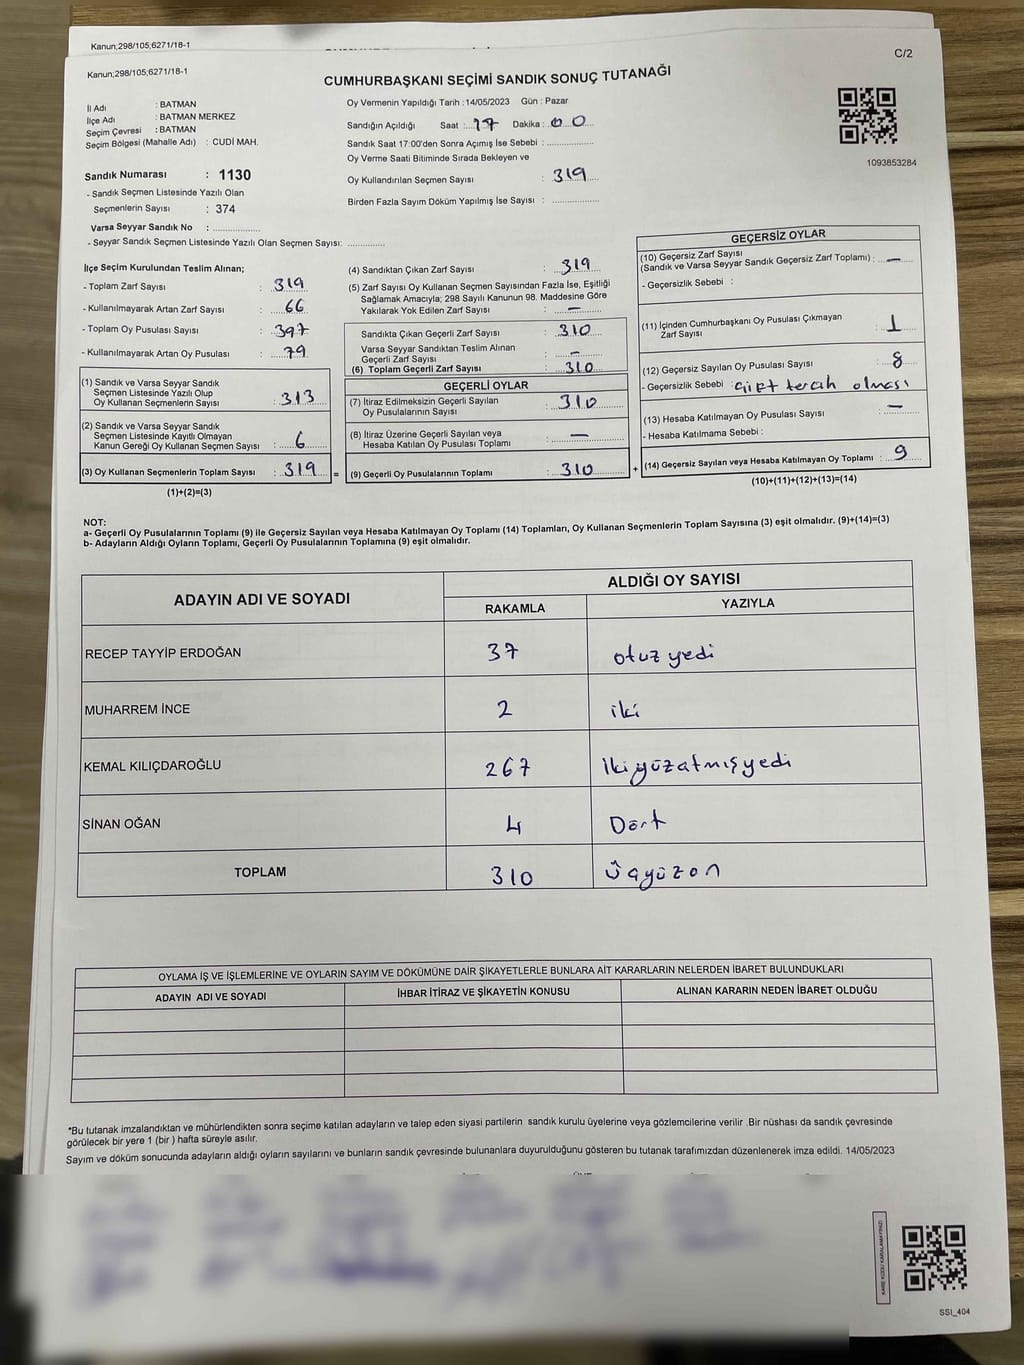 Kanun;298/105;6271/18-1
Kanun;298/105;6271/18-1
C/2
CUMHURBAŞKANI SEÇİMİ SANDIK SONUÇ TUTANAĞI
İl Adı : BATMAN
İlçe Adı : BATMAN MERKEZ
Seçim Çevresi : BATMAN
Seçim Bölgesi (Mahalle Adı) : CUDİ MAH.
Sandık Numarası : 1130
- Sandık Seçmen Listesinde Yazılı Olan
Seçmenlerin Sayısı : 374
Varsa Seyyar Sandık No : ...............
- Seyyar Sandık Seçmen Listesinde Yazılı Olan Seçmen Sayısı: ............
Oy Vermenin Yapıldığı Tarih : 14/05/2023 Gün : Pazar
Sandığın Açıldığı Saat : 17 Dakika : 00
Sandık Saat 17:00'den Sonra Açımış İse Sebebi : ...............
Oy Verme Saati Bitiminde Sırada Bekleyen ve
Oy Kullandırılan Seçmen Sayısı : 319
Birden Fazla Sayım Döküm Yapılmış İse Sayısı : ...............
1093853284
İlçe Seçim Kurulundan Teslim Alınan;
- Toplam Zarf Sayısı : 319
- Kullanılmayarak Artan Zarf Sayısı : 66
- Toplam Oy Pusulası Sayısı : 397
- Kullanılmayarak Artan Oy Pusulası : 79
(1) Sandık ve Varsa Seyyar Sandık
Seçmen Listesinde Yazılı Olup
Oy Kullanan Seçmenlerin Sayısı : 313
(2) Sandık ve Varsa Seyyar Sandık
Seçmen Listesinde Kayıtlı Olmayan
Kanun Gereği Oy Kullanan Seçmen Sayısı : 6
(3) Oy Kullanan Seçmenlerin Toplam Sayısı : 319 =
(1)+(2)=(3)
(4) Sandıktan Çıkan Zarf Sayısı : 319
(5) Zarf Sayısı Oy Kullanan Seçmen Sayısından Fazla İse, Eşitliği
Sağlamak Amacıyla; 298 Sayılı Kanunun 98. Maddesine Göre
Yakılarak Yok Edilen Zarf Sayısı : –
Sandıkta Çıkan Geçerli Zarf Sayısı : 310
Varsa Seyyar Sandıktan Teslim Alınan
Geçerli Zarf Sayısı : –
(6) Toplam Geçerli Zarf Sayısı : 310
GEÇERLİ OYLAR
(7) İtiraz Edilmeksizin Geçerli Sayılan
Oy Pusulalarının Sayısı : 310
(8) İtiraz Üzerine Geçerli Sayılan veya
Hesaba Katılan Oy Pusulası Toplamı : –
(9) Geçerli Oy Pusulalarının Toplamı : 310 +
GEÇERSİZ OYLAR
(10) Geçersiz Zarf Sayısı
(Sandık ve Varsa Seyyar Sandık Geçersiz Zarf Toplamı) : –
- Geçersizlik Sebebi :
(11) İçinden Cumhurbaşkanı Oy Pusulası Çıkmayan
Zarf Sayısı : 1
(12) Geçersiz Sayılan Oy Pusulası Sayısı : 8
- Geçersizlik Sebebi : çift tercih olması
(13) Hesaba Katılmayan Oy Pusulası Sayısı : –
- Hesaba Katılmama Sebebi :
(14) Geçersiz Sayılan veya Hesaba Katılmayan Oy Toplamı : 9
(10)+(11)+(12)+(13)=(14)
NOT:
a- Geçerli Oy Pusulalarının Toplamı (9) ile Geçersiz Sayılan veya Hesaba Katılmayan Oy Toplamı (14) Toplamları, Oy Kullanan Seçmenlerin Toplam Sayısına (3) eşit olmalıdır. (9)+(14)=(3)
b- Adayların Aldığı Oyların Toplamı, Geçerli Oy Pusulalarının Toplamına (9) eşit olmalıdır.
ADAYIN ADI VE SOYADI
ALDIĞI OY SAYISI
RAKAMLA YAZIYLA
RECEP TAYYİP ERDOĞAN 37 otuz yedi
MUHARREM İNCE 2 iki
KEMAL KILIÇDAROĞLU 267 İkiyüzatmışyedi
SİNAN OĞAN 4 Dört
TOPLAM 310 Üçyüzon
OYLAMA İŞ VE İŞLEMLERİNE VE OYLARIN SAYIM VE DÖKÜMÜNE DAİR ŞİKAYETLERLE BUNLARA AİT KARARLARIN NELERDEN İBARET BULUNDUKLARI
ADAYIN ADI VE SOYADI İHBAR İTİRAZ VE ŞİKAYETİN KONUSU ALINAN KARARIN NEDEN İBARET OLDUĞU
*Bu tutanak imzalandıktan ve mühürlendikten sonra seçime katılan adayların ve talep eden siyasi partilerin sandık kurulu üyelerine veya gözlemcilerine verilir .Bir nüshası da sandık çevresinde
görülecek bir yere 1 (bir ) hafta süreyle asılır.
Sayım ve döküm sonucunda adayların aldığı oyların sayılarını ve bunların sandık çevresinde bulunanlara duyurulduğunu gösteren bu tutanak tarafımızdan düzenlenerek imza edildi. 14/05/2023
KARE KODU KARALAMAYINIZ!
SSI_404